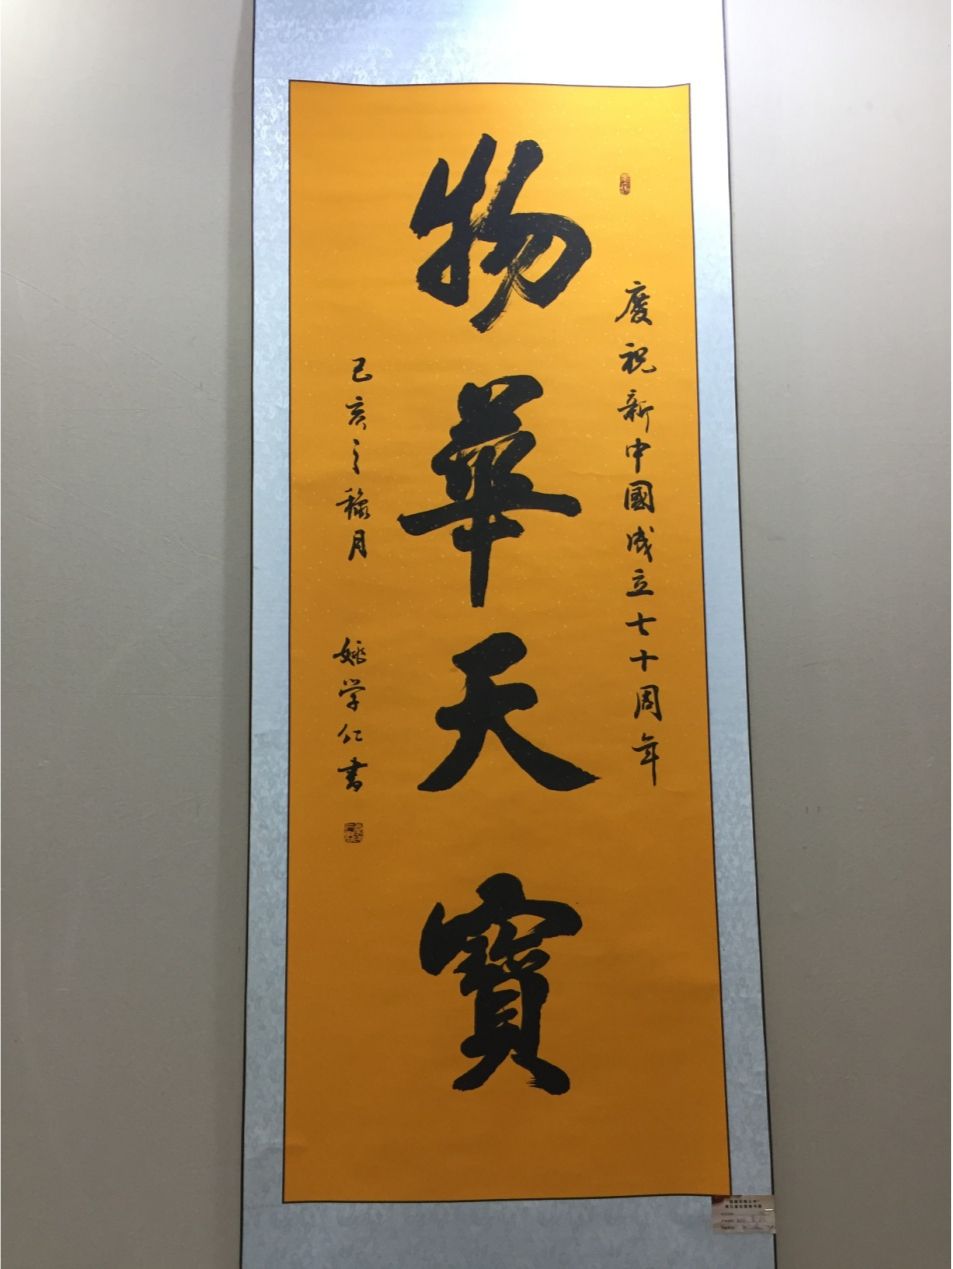 慶祝新中國成立七十周年
物華天寶
己亥之穐月
姚学仁書